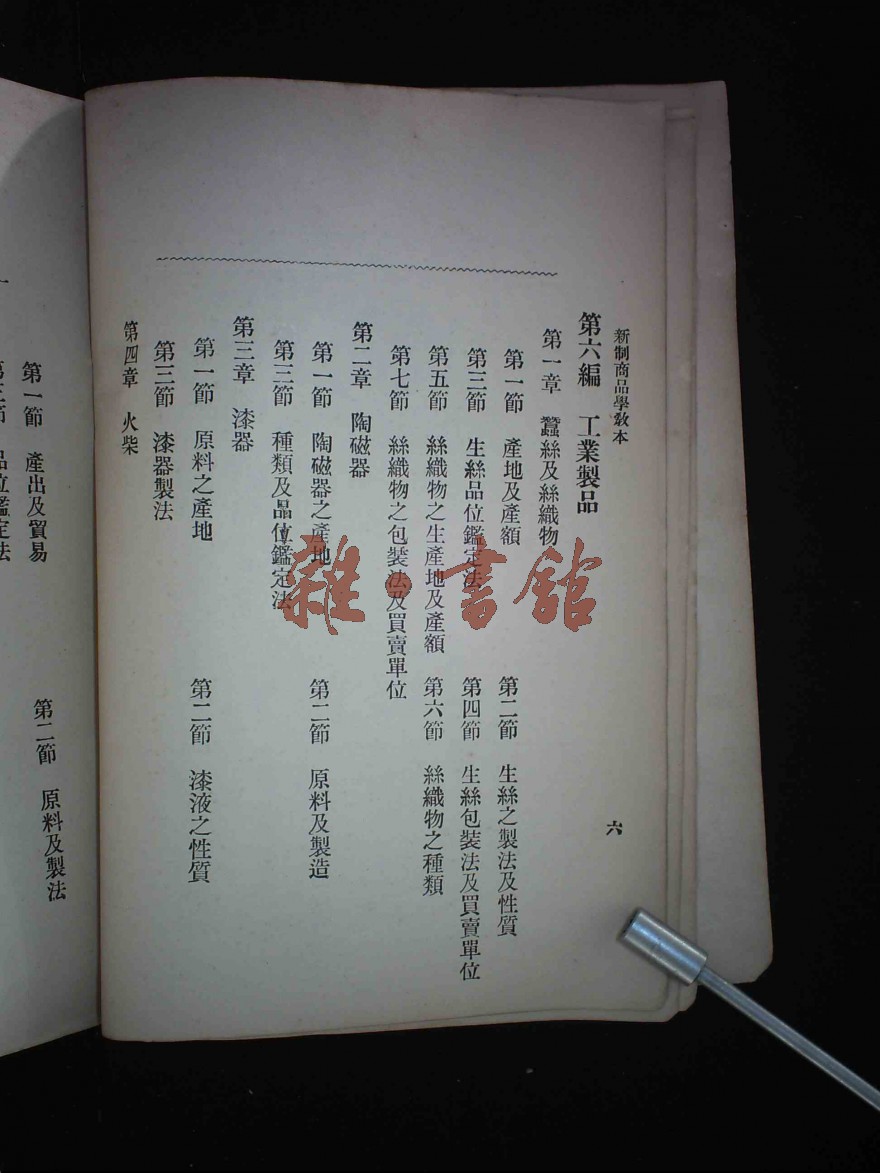 新制商品學敎本
六
第六編 工業製品
第一章 蠶絲及絲織物
第一節 產地及產額 第二節 生絲之製法及性質
第三節 生絲品位鑑定法 第四節 生絲包裝法及買賣單位
第五節 絲織物之生產地及產額 第六節 絲織物之種類
第七節 絲織物之包裝法及買賣單位
第二章 陶磁器
第一節 陶磁器之產地 第二節 原料及製造
第三節 種類及品位鑑定法
第三章 漆器
第一節 原料之產地 第二節 漆液之性質
第三節 漆器製法
第四章 火柴
第一節 產出及貿易 第二節 原料及製法
第三節 品位鑑定法
雜·書館